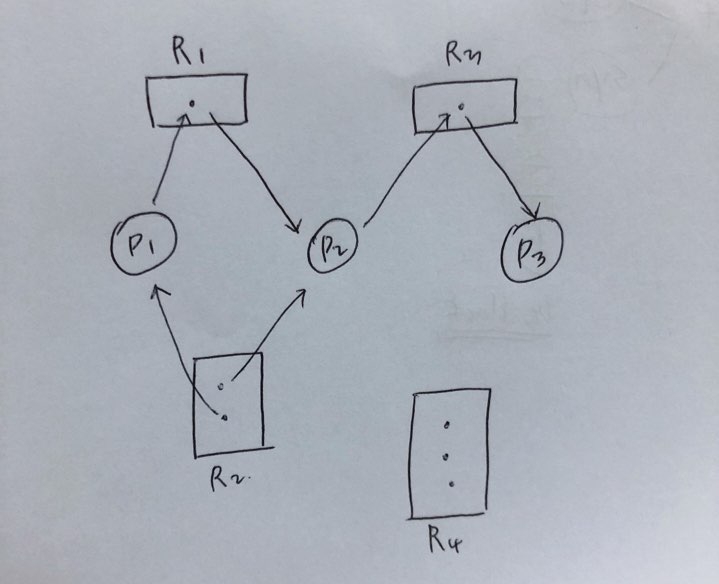 R1
R3
P1
P2
P3
R2.
R4